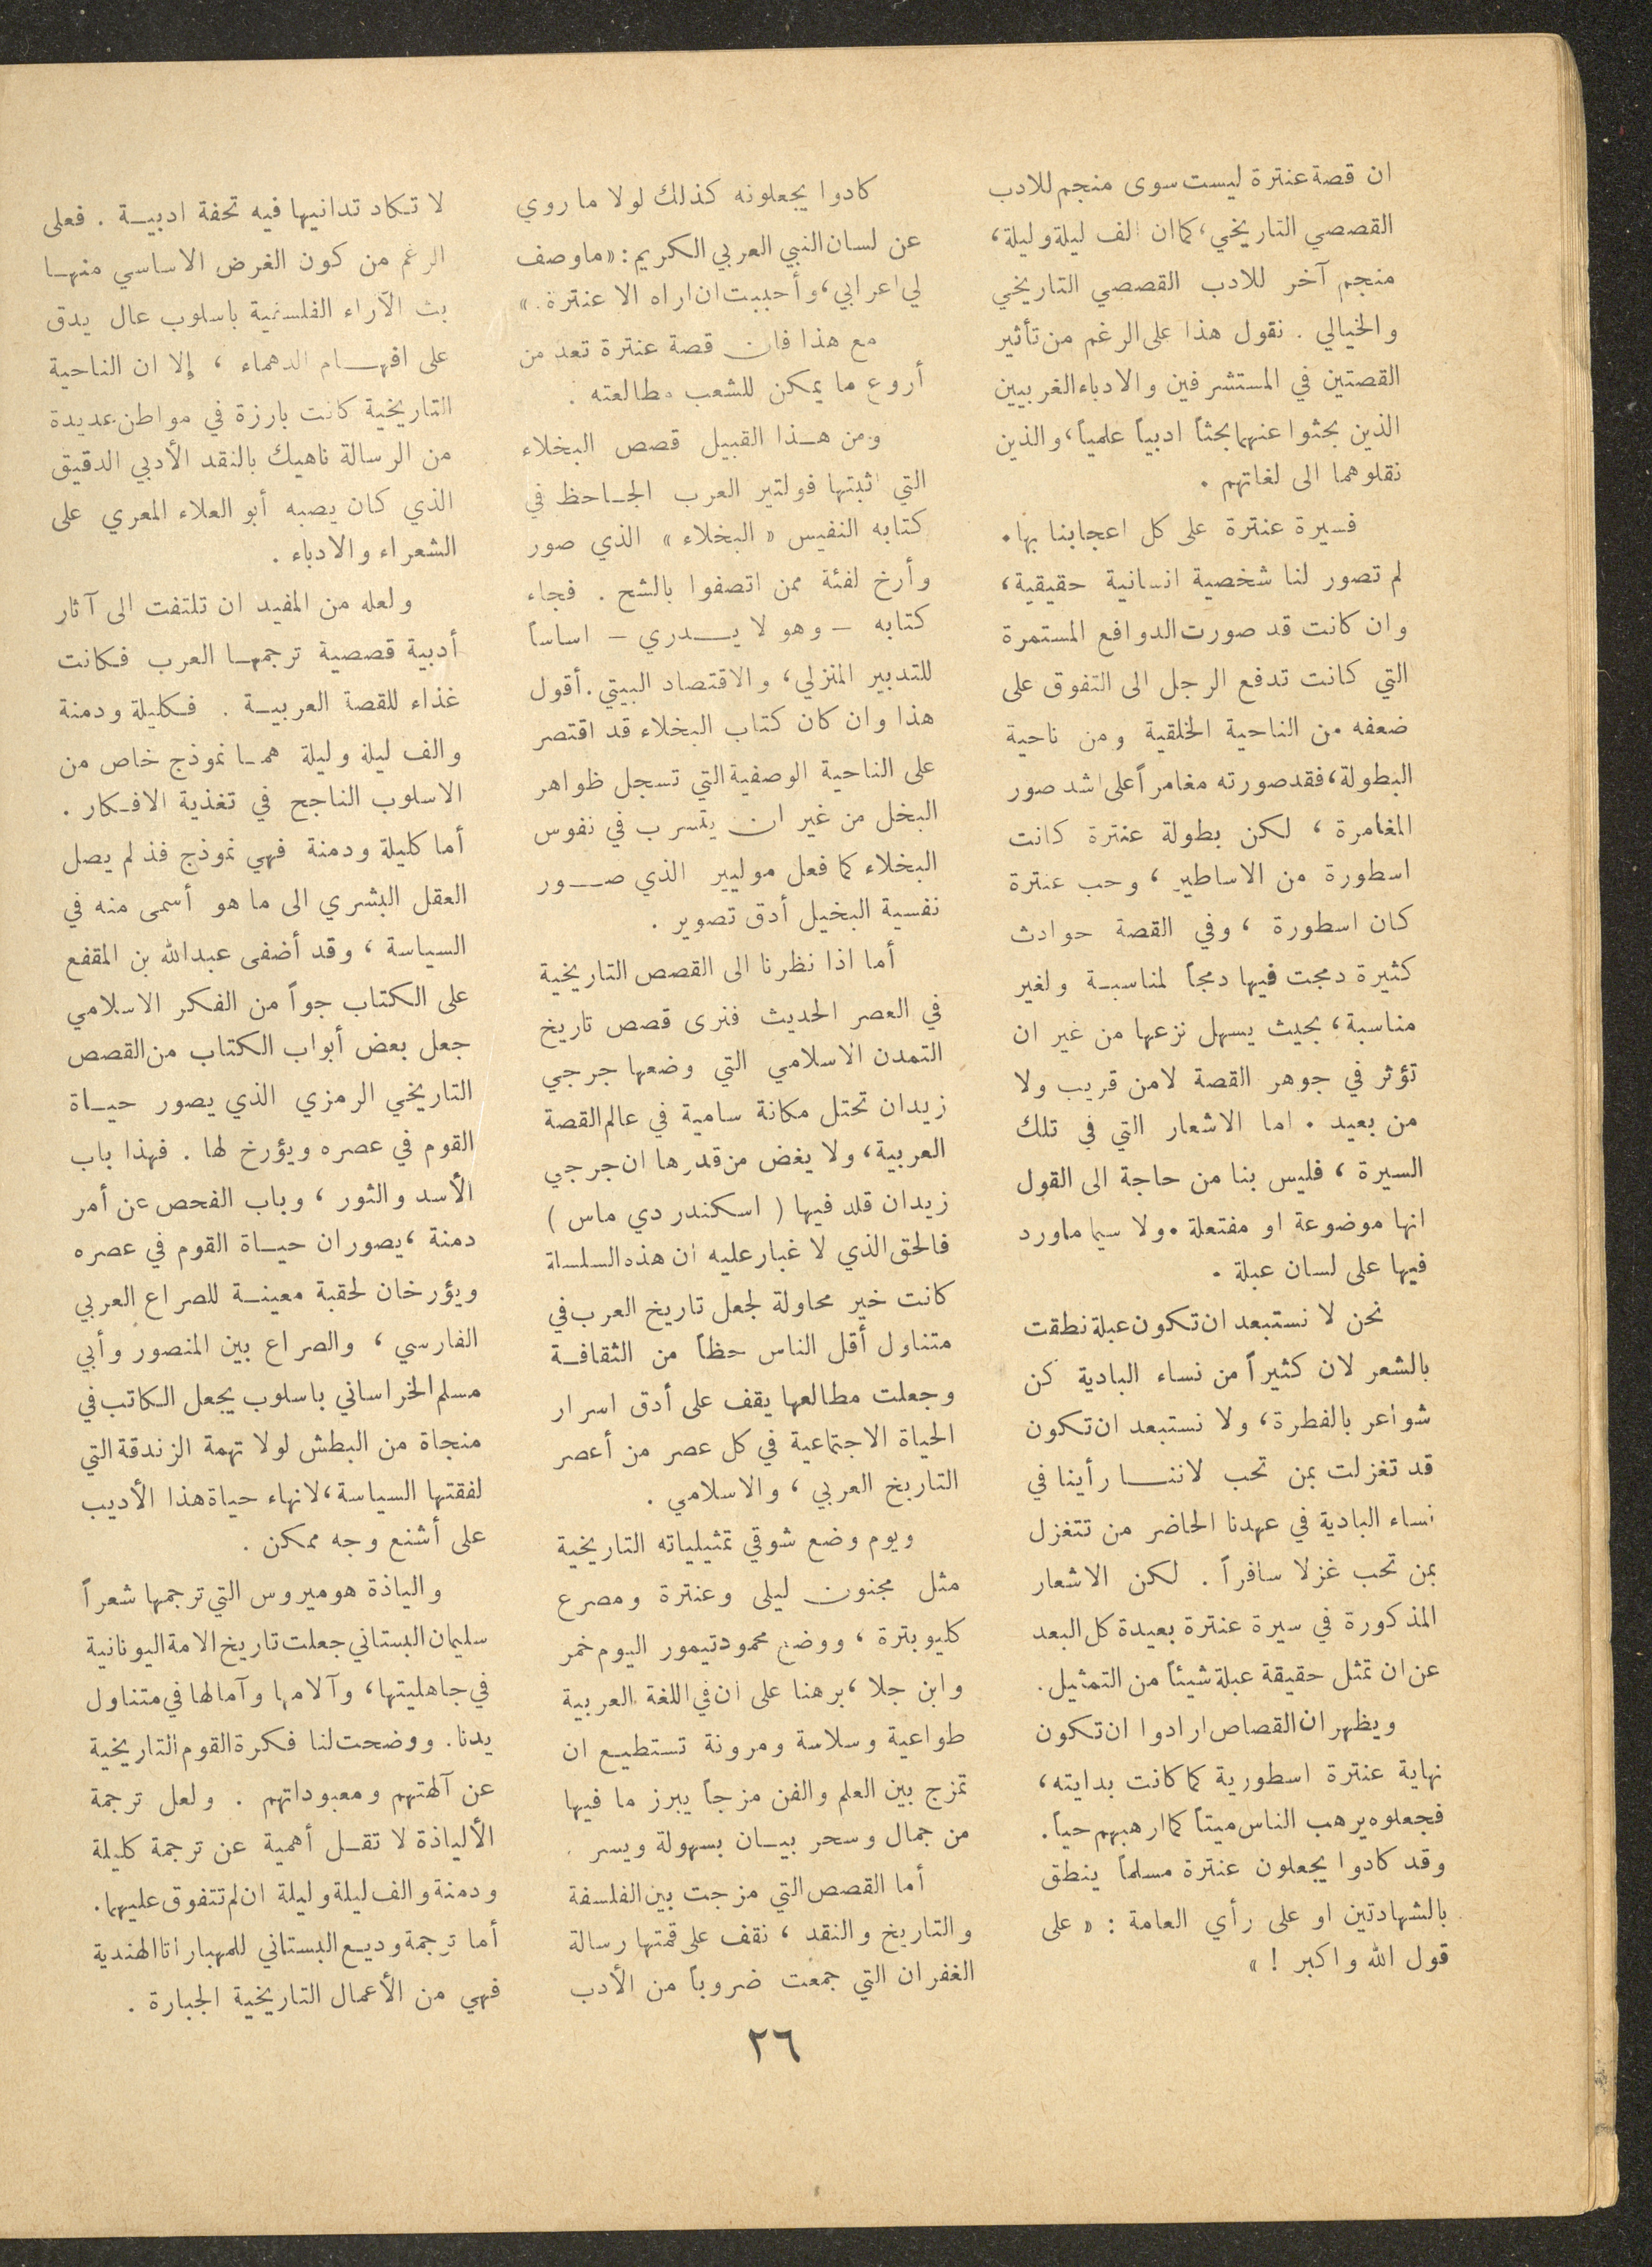 ان قصة عنترة ليست سوى منجم للادب
القصصي التاريخي، كما ان الف ليلة وليلة،
منجم آخر للادب القصصي التاريخي
والخيالي . نقول هذا على الرغم من تأثير
القصتين في المستشرقين والادباء الغربيين
الذين بحثوا عنهما بحثاً ادبياً علمياً، والذين
نقلوهما الى لغاتهم .
فسيرة عنترة على كل اعجابنا بها.
لم تصور لنا شخصية انسانية حقيقية،
وان كانت قد صورت الدوافع المستمرة
التي كانت تدفع الرجل الى التفوق على
ضعفه من الناحية الخلقية ومن ناحية
البطولة، فقد صورته مغامراً على اشد صور
المغامرة ، لكن بطولة عنترة كانت
اسطورة من الاساطير ، وحب عنترة
كان اسطورة ، وفي القصة حوادث
كثيرة دمجت فيها دمجاً لمناسبة ولغير
مناسبة، بحيث يسهل نزعها من غير ان
تؤثر في جوهر القصة لامن قريب ولا
من بعيد . اما الاشعار التي في تلك
السيرة ، فليس بنا من حاجة الى القول
انها موضوعة او مفتعلة . ولا سيما ماورد
فيها على لسان عبلة .
نحن لا نستبعد ان تكون عبلة نطقت
بالشعر لان كثيراً من نساء البادية كن
شواعر بالفطرة، ولا نستبعد ان تكون
قد تغزلت بمن تحب لاننا رأينا في
نساء البادية في عهدنا الحاضر من تتغزل
بمن تحب غزلا سافراً . لكن الاشعار
المذكورة في سيرة عنترة بعيدة كل البعد
عن ان تمثل حقيقة عبلة شيئاً من التمثيل.
ويظهر ان القصاص ارادوا ان تكون
نهاية عنترة اسطورية كما كانت بدايته،
فجعلوه يرهب الناس ميتاً كما ارهبهم حياً.
وقد كادوا يجعلون عنترة مسلماً ينطق
بالشهادتين او على رأي العامة : « على
قول الله واكبر ! »
كادوا يجعلونه كذلك لولا ما روي
عن لسان النبي العربي الكريم : «ما وصف
لي اعرابي، وأحببت ان اراه الا عنترة.»
مع هذا فان قصة عنترة تعد من
أروع ما يمكن للشعب مطالعته .
ومن هذا القبيل قصص البخلاء
التي اثبتها فولتير العرب الجاحظ في
كتابه النفيس « البخلاء » الذي صور
وأرخ لفئة ممن اتصفوا بالشح . فجاء
كتابه – وهو لا يدري – اساساً
للتدبير المنزلي، والاقتصاد البيتي. أقول
هذا وان كان كتاب البخلاء قد اقتصر
على الناحية الوصفية التي تسجل ظواهر
البخل من غير ان يتسرب في نفوس
البخلاء كما فعل موليير الذي صور
نفسية البخيل أدق تصوير .
أما اذا نظرنا الى القصص التاريخية
في العصر الحديث فنرى قصص تاريخ
التمدن الاسلامي التي وضعها جرجي
زيدان تحتل مكانة سامية في عالم القصة
العربية، ولا يغض من قدرها ان جرجي
زيدان قلد فيها ( اسكندر دي ماس )
فالحق الذي لا غبار عليه ان هذه السلسلة
كانت خير محاولة لجعل تاريخ العرب في
متناول أقل الناس حظاً من الثقافة
وجعلت مطالعها يقف على أدق اسرار
الحياة الاجتماعية في كل عصر من أعصر
التاريخ العربي ، والاسلامي .
ويوم وضع شوقي تمثيلياته التاريخية
مثل مجنون ليلى وعنترة ومصرع
كليوبترة ، ووضع محمود تيمور اليوم خمر
وابن جلا ، برهنا على ان في اللغة العربية
طواعية وسلاسة ومرونة تستطيع ان
تمزج بين العلم والفن مزجاً يبرز ما فيها
من جمال وسحر بيان بسهولة ويسر .
أما القصص التي مزجت بين الفلسفة
والتاريخ والنقد ، نقف على قمتها رسالة
الغفران التي جمعت ضروباً من الأدب
لا تكاد تدانيها فيه تحفة ادبية . فعلى
الرغم من كون الغرض الاساسي منها
بث الآراء الفلسفية باسلوب عال يدق
على افهام الدهماء ، إلا ان الناحية
التاريخية كانت بارزة في مواطن عديدة
من الرسالة ناهيك بالنقد الأدبي الدقيق
الذي كان يصبه أبو العلاء المعري على
الشعراء والادباء .
ولعله من المفيد ان تلتفت الى آثار
أدبية قصصية ترجمها العرب فكانت
غذاء للقصة العربية . فكليلة ودمنة
والف ليلة وليلة هما نموذج خاص من
الاسلوب الناجح في تغذية الافكار .
أما كليلة ودمنة فهي نموذج فذ لم يصل
العقل البشري الى ما هو أسمى منه في
السياسة ، وقد أضفى عبدالله بن المقفع
على الكتاب جواً من الفكر الاسلامي
جعل بعض أبواب الكتاب من القصص
التاريخي الرمزي الذي يصور حياة
القوم في عصره ويؤرخ لها . فهذا باب
الأسد والثور ، وباب الفحص عن أمر
دمنة ، يصوران حياة القوم في عصره
ويؤرخان لحقبة معينة للصراع العربي
الفارسي ، والصراع بين المنصور وأبي
مسلم الخراساني باسلوب يجعل الكاتب في
منجاة من البطش لولا تهمة الزندقة التي
لفقتها السياسة، لانهاء حياة هذا الأديب
على أشنع وجه ممكن .
والياذة هوميروس التي ترجمها شعراً
سليمان البستاني جعلت تاريخ الامة اليونانية
في جاهليتها، وآلامها وآمالها في متناول
يدنا. ووضحت لنا فكرة القوم التاريخية
عن آلهتهم ومعبوداتهم . ولعل ترجمة
الألياذة لا تقل أهمية عن ترجمة كليلة
ودمنة والف ليلة وليلة ان لم تتفوق عليهما.
أما ترجمة وديع البستاني للمهباراتا الهندية
فهي من الأعمال التاريخية الجبارة .
٢٦